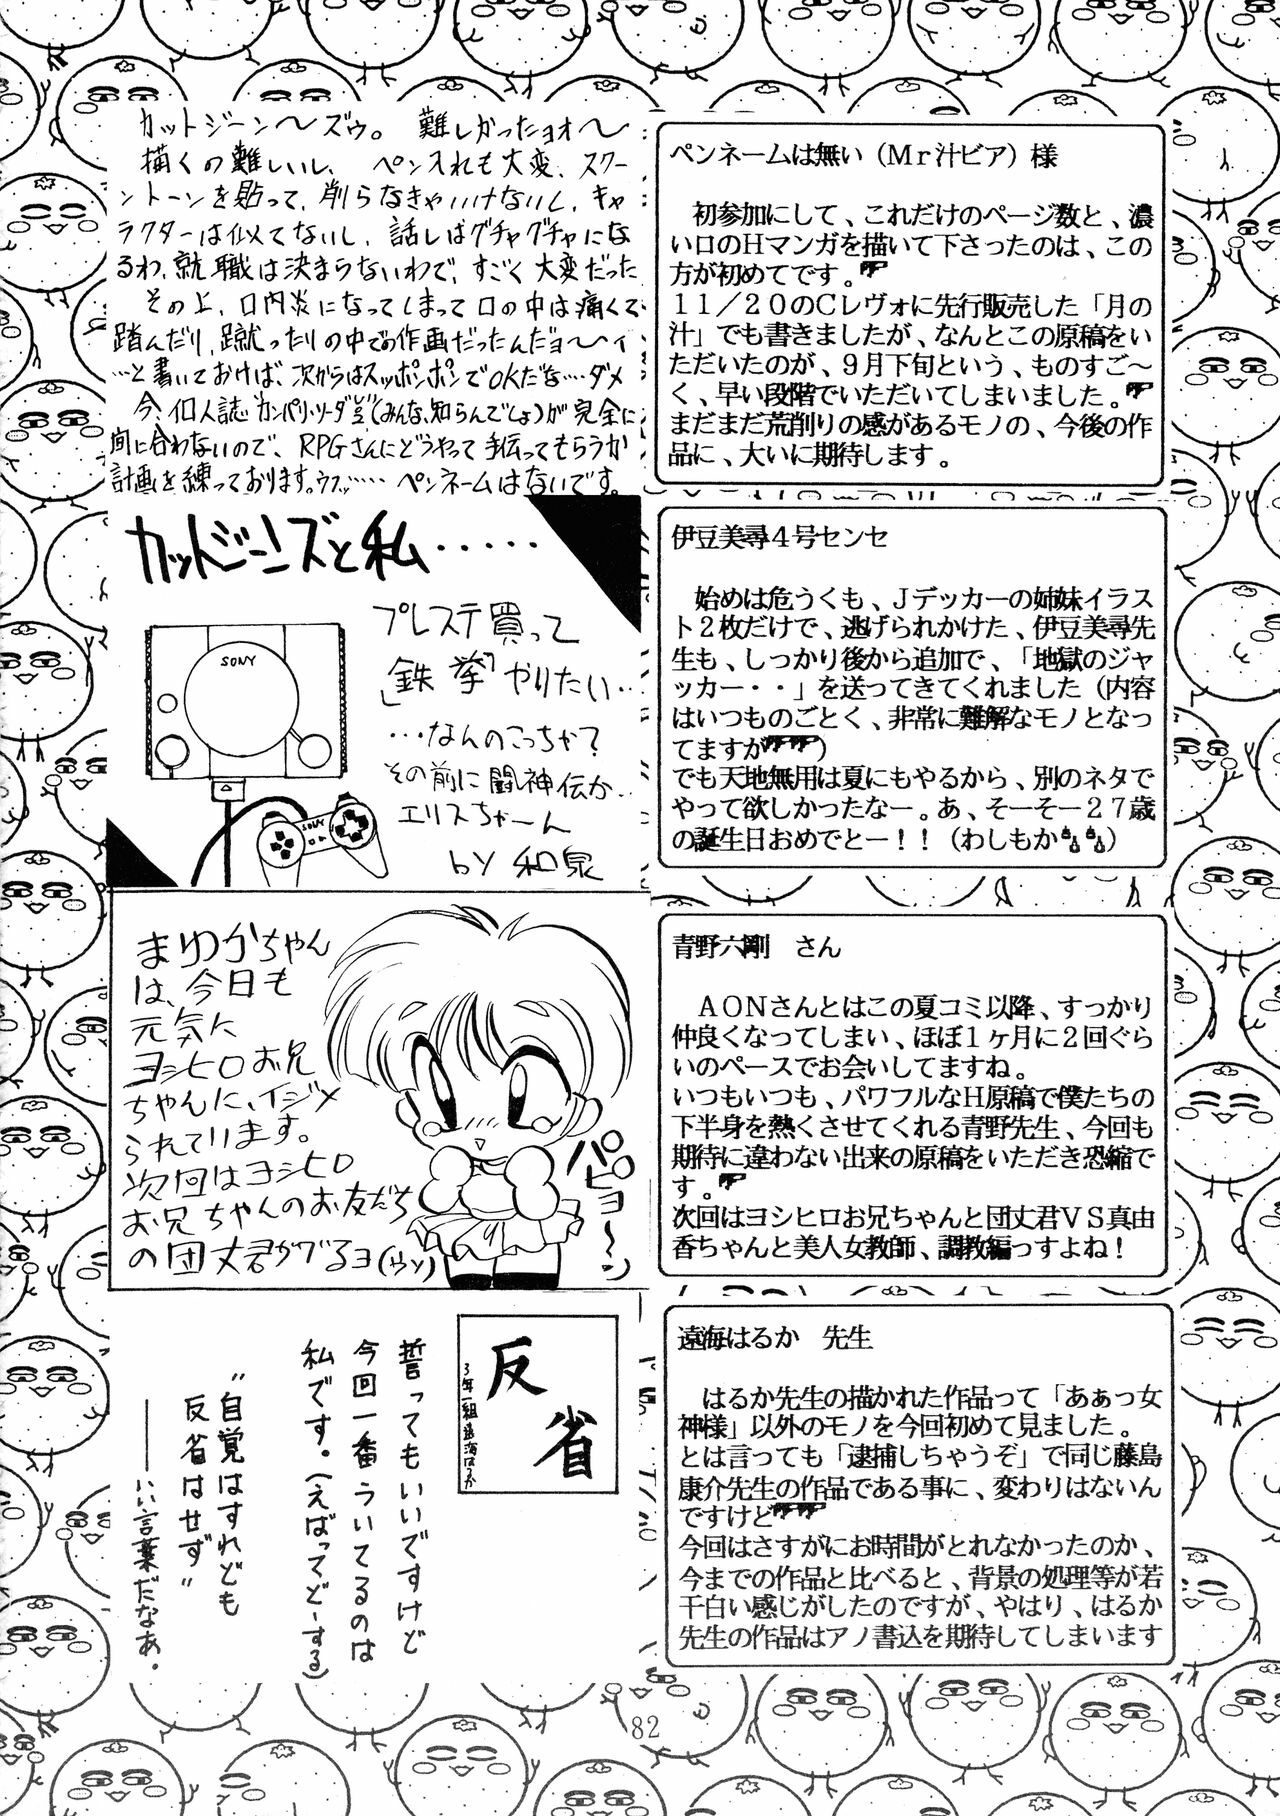 カットジーン〜ズゥ。 難しかったョオ〜
描くの難しいし、ペン入れも大変、スクーン
トーンを貼って、削らなきゃいけないし、キャ
ラクターは似てないし、話しはグチャグチャにな
るわ、就職は決まらないわで、すごく大変だった
その上、口内炎になってしまって口の中は痛くて
踏んだり、蹴ったりの中での作画だったんだョ〜ィ
…と書いておけば、次からはスッポンポンでOKだな…ダメ
今、個人誌カンパリ・ソーダ(みんな、知らんでしょ)が完全に
間に合わないので、RPGさんにどうやって手伝ってもらうか
計画を練っております。ウフッ…… ペンネームはないです。
ペンネームは無い（Ｍｒ汁ビア）様
初参加にして、これだけのページ数と、濃
い口のＨマンガを描いて下さったのは、この
方が初めてです。
１１／２０のＣレヴォに先行販売した「月の
汁」でも書きましたが、なんとこの原稿をい
ただいたのが、９月下旬という、ものすご～
く、早い段階でいただいてしまいました。
まだまだ荒削りの感があるモノの、今後の作
品に、大いに期待します。
カットジーンズと私・・・・・
プレステ買って
「鉄拳」やりたい…
…なんのこっちゃ？
その前に闘神伝か…
エリスちゃーん
by 和泉
SONY
SONY
伊豆美尋４号センセ
始めは危うくも、Ｊデッカーの姉妹イラス
ト２枚だけで、逃げられかけた、伊豆美尋先
生も、しっかり後から追加で、「地獄のジャ
ッカー・・」を送ってきてくれました（内容
はいつものごとく、非常に難解なモノとなっ
てますが）
でも天地無用は夏にもやるから、別のネタで
やって欲しかったなー。あ、そーそー２７歳
の誕生日おめでとー！！（わしもか）
まゆかちゃん
は、今日も
元気に
ヨシヒロお兄
ちゃんに、イジメ
られています。
次回はヨシヒロ
お兄ちゃんのお友だち
の団丈君がでるヨ(ウソ)
パピョ〜ン
青野六剛　さん
ＡＯＮさんとはこの夏コミ以降、すっかり
仲良くなってしまい、ほぼ１ヶ月に２回ぐら
いのペースでお会いしてますね。
いつもいつも、パワフルなＨ原稿で僕たちの
下半身を熱くさせてくれる青野先生、今回も
期待に違わない出来の原稿をいただき恐縮で
す。
次回はヨシヒロお兄ちゃんと団丈君ＶＳ真由
香ちゃんと美人女教師、調教編っすよね！
反省
３年一組 遠海はるか
誓ってもいいですけど
今回一番ういてるのは
私です。(えばってどーする)
“自覚はすれども
反省はせず”
――いい言葉だなあ.
遠海はるか　先生
はるか先生の描かれた作品って「あぁっ女
神様」以外のモノを今回初めて見ました。
とは言っても「逮捕しちゃうぞ」で同じ藤島
康介先生の作品である事に、変わりはないん
ですけど
今回はさすがにお時間がとれなかったのか、
今までの作品と比べると、背景の処理等が若
干白い感じがしたのですが、やはり、はるか
先生の作品はアノ書込を期待してしまいます
82